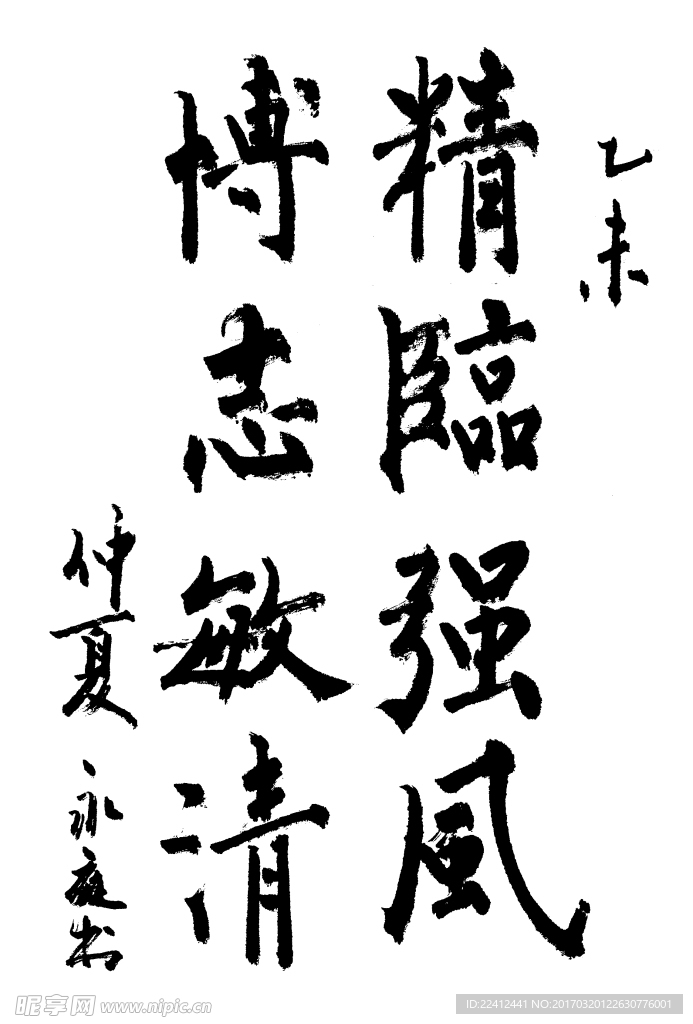 乙未
精臨强風
博志敏清
仲夏 永庭书
昵享网 www.nipic.cn
ID:22412441 NO:20170320122630776001